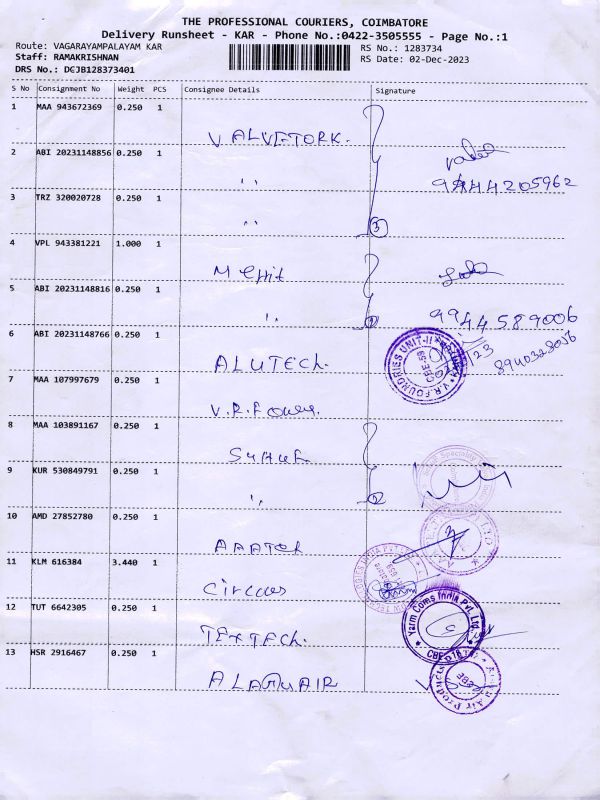 THE PROFESSIONAL COURIERS, COIMBATORE
Delivery Runsheet - KAR - Phone No.:0422-3505555 - Page No.:1
Route: VAGARAYAMPALAYAM KAR RS No.: 1283734
Staff: RAMAKRISHNAN RS Date: 02-Dec-2023
DRS No.: DCJB128373401
S No Consignment No Weight PCS Consignee Details Signature
1 MAA 943672369 0.250 1
V. ALVETORK.
2 ABI 20231148856 0.250 1
" 9444205962
3 TRZ 320020728 0.250 1
" 3
4 VPL 943381221 1.000 1
5 ABI 20231148816 0.250 1
" 2 9944589006
6 ABI 20231148766 0.250 1
8940328056
ALUTECH.
V.R. FOUNDRIES UNIT-II
7 MAA 107997679 0.250 1
V.R.F
8 MAA 103891167 0.250 1
9 KUR 530849791 0.250 1
" 2
10 AMD 27852780 0.250 1
11 KLM 616384 3.440 1
12 TUT 6642305 0.250 1
TEXTECH.
Yarm Coms India Pvt. Ltd.
13 HSR 2916467 0.250 1
Air Products